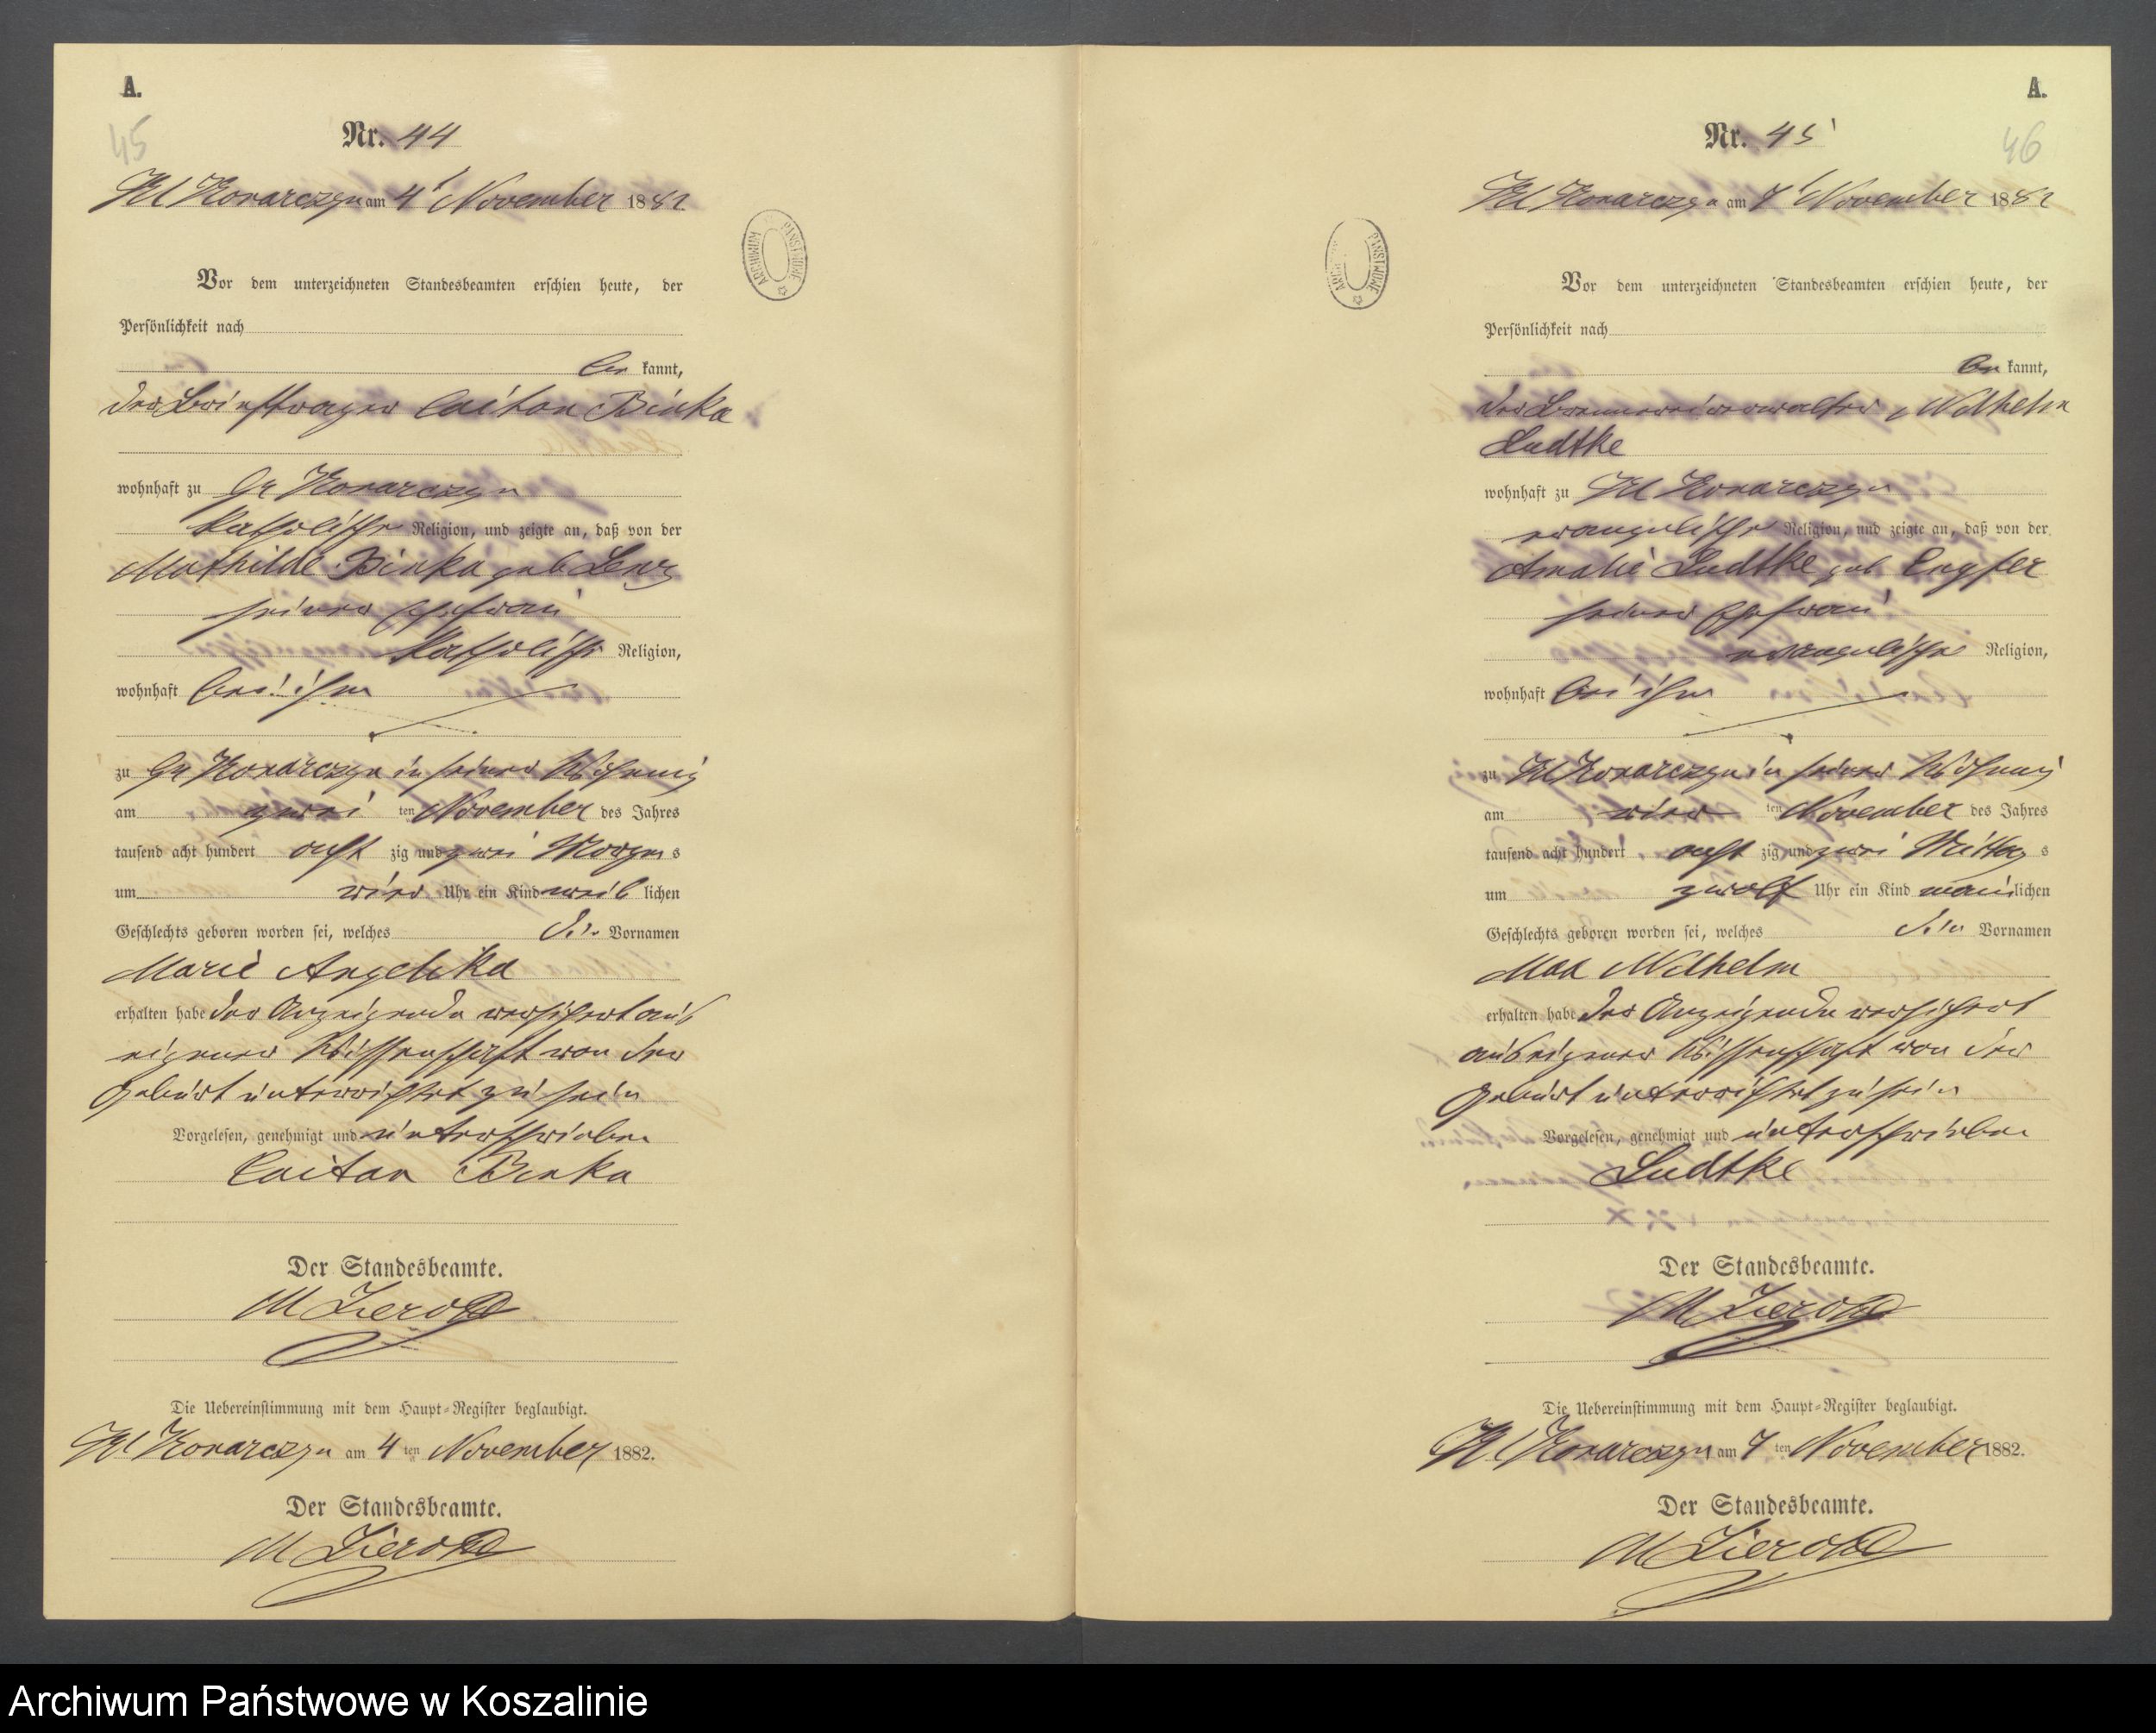 A.
45
Nr. 44
Kl Konarczyn am 4t November 1882
Vor dem unterzeichneten Standesbeamten erschien heute, der
Persönlichkeit nach
be kannt,
der Briefträger Caitan Binka
wohnhaft zu Gr Konarczyn
katholischer Religion, und zeigte an, daß von der
Mathilde Binka geb. Lenz
seiner Ehefrau
katholischer Religion,
wohnhaft bei ihm
zu Gr Konarczyn in seiner Wohnung
am zwei ten November des Jahres
tausend acht hundert acht zig und zwei Morgen s
um vier Uhr ein Kind weib lichen
Geschlechts geboren worden sei, welches die Vornamen
Marie Angelika
erhalten habe der Anzeigende versichert aus
eigener Wissenschaft von der
Geburt unterrichtet zu sein
Vorgelesen, genehmigt und unterschrieben
Caitan Binka
Der Standesbeamte.
M Zierold
Die Uebereinstimmung mit dem Haupt-Register beglaubigt.
Kl Konarczyn am 4 ten November 1882.
Der Standesbeamte.
M Zierold
ARCHIWUM PAŃSTWOWE
A.
46
Nr. 45
Kl Konarczyn am 7t November 1882
Vor dem unterzeichneten Standesbeamten erschien heute, der
Persönlichkeit nach
be kannt,
der Brennereiverwalter Wilhelm
Ludtke
wohnhaft zu Kl Konarczyn
evangelischer Religion, und zeigte an, daß von der
Amalie Ludtke geb. Engfer
seiner Ehefrau
evangelischer Religion,
wohnhaft bei ihm
zu Kl Konarczyn in seiner Wohnung
am vier ten November des Jahres
tausend acht hundert acht zig und zwei Mittag s
um zwölf Uhr ein Kind männlichen
Geschlechts geboren worden sei, welches die Vornamen
Max Wilhelm
erhalten habe der Anzeigende versichert
aus eigener Wissenschaft von der
Geburt unterrichtet zu sein
Vorgelesen, genehmigt und unterschrieben
Ludtke
Der Standesbeamte.
M Zierold
Die Uebereinstimmung mit dem Haupt-Register beglaubigt.
Kl Konarczyn am 7 ten November 1882.
Der Standesbeamte.
M Zierold
Archiwum Państwowe w Koszalinie